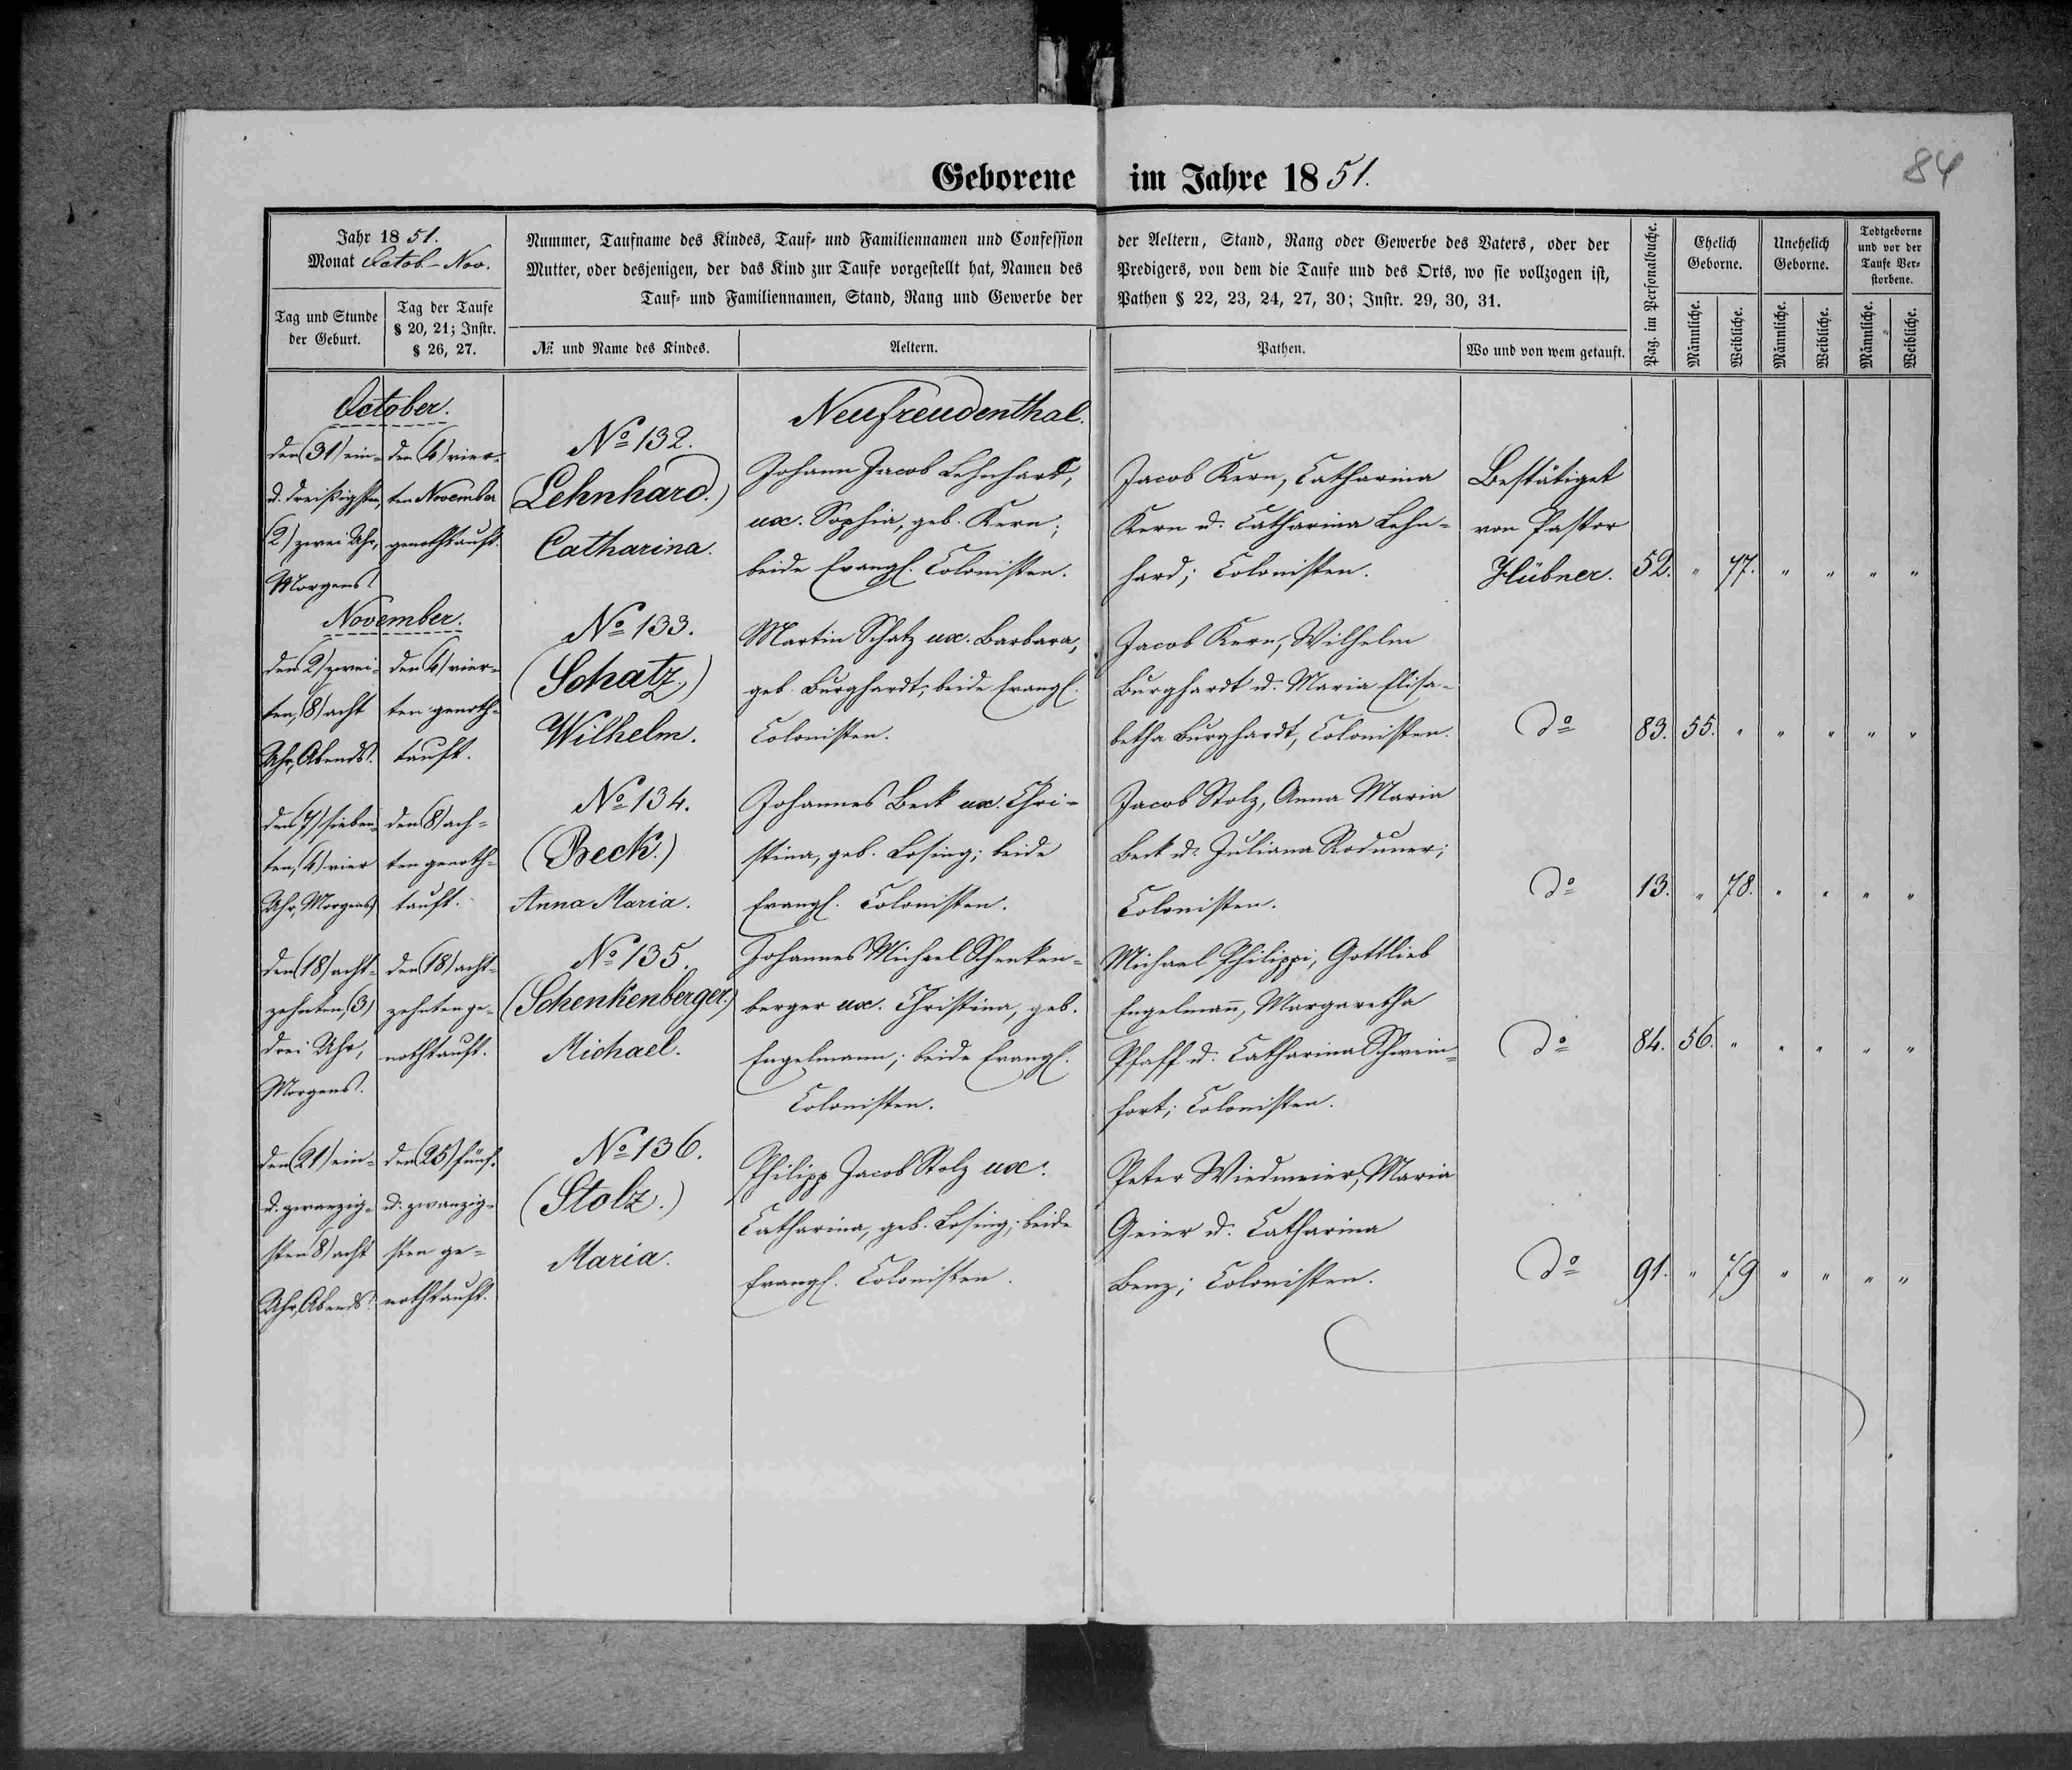 84
Geborene im Jahre 1851.
Jahr 1851.
Monat Octob.-Nov.
Tag und Stunde
der Geburt.
Tag der Taufe
§ 20, 21; Instr.
§ 26, 27.
Nummer, Taufname des Kindes, Tauf- und Familiennamen und Confession der Aeltern, Stand, Rang oder Gewerbe des Vaters, oder der
Mutter, oder desjenigen, der das Kind zur Taufe vorgestellt hat, Namen des Predigers, von dem die Taufe und des Orts, wo sie vollzogen ist,
Tauf- und Familiennamen, Stand, Rang und Gewerbe der Pathen § 22, 23, 24, 27, 30; Instr. 29, 30, 31.
№ und Name des Kindes.
Aeltern.
Pathen.
Wo und von wem getauft.
Pag. im Personalbuche.
Ehelich
Geborne.
Männliche.
Weibliche.
Unehelich
Geborne.
Männliche.
Weibliche.
Todtgeborne
und vor der
Taufe Ver-
storbene.
Männliche.
Weibliche.
October.
den (31) ein-
u. dreißigsten,
(2) zwei Uhr,
Morgens.
den (4) vier-
ten November
genothtauft.
No 132.
(Lehnhard.)
Catharina.
Neufreudenthal.
Johann Jacob Lehnhard,
ux. Sophia, geb. Kern;
beide Evangl. Colonisten.
Jacob Kern, Catharina
Kern u. Catharina Lehn-
hard; Colonisten.
Bestätiget
von Pastor
Hübner.
52. " 77. " " " "
November.
den 2) zwei-
ten, (8) acht
Uhr, Abends.
den (4) vier-
ten genoth-
tauft.
No 133.
(Schatz.)
Wilhelm.
Martin Schatz ux. Barbara,
geb. Burghardt; beide Evangl.
Colonisten.
Jacob Kern, Wilhelm
Burghardt u. Maria Elisa-
betha Burghardt, Colonisten.
do
83. 55. " " " " "
den 7) sieben-
ten, (4) vier
Uhr, Morgens
den (8) ach-
ten genoth-
tauft.
No 134.
(Beck.)
Anna Maria.
Johannes Beck ux. Chri-
stina, geb. Losing; beide
Evangl. Colonisten.
Jacob Stolz, Anna Maria
Beck u. Juliana Roduner;
Colonisten.
do
13. " 78. " " " "
den (18) acht-
zehnten, (3)
drei Uhr,
Morgens.
den (18) acht-
zehnten ge-
nothtauft.
No 135.
(Schenkenberger.)
Michael.
Johannes Michael Schenken-
berger ux. Christina, geb.
Engelmann; beide Evangl.
Colonisten.
Michael Philippi, Gottlieb
Engelmañ, Margaretha
Pfaff u. Catharina Schwein-
fort; Colonisten.
do
84. 56. " " " " "
den (21) ein-
u. zwanzig-
sten 8) acht
Uhr, Abends.
den (25) fünf-
u. zwanzig-
sten ge-
nothtauft.
No 136.
(Stolz.)
Maria.
Philipp Jacob Stolz ux.
Catharina, geb. Losing; beide
Evangl. Colonisten.
Peter Wiedmeier, Maria
Geier u. Catharina
Benz; Colonisten.
do
91. " 79 " " " "